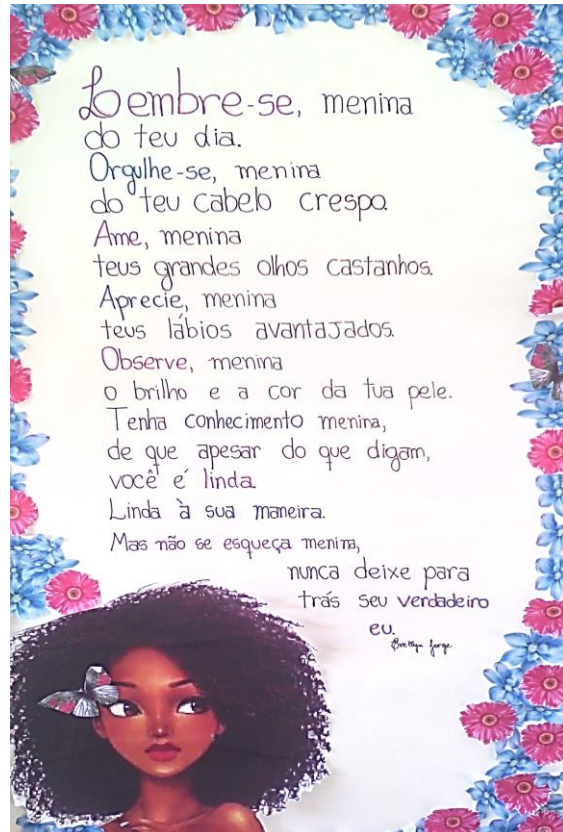 Lembre-se, menina
do teu dia.
Orgulhe-se, menina
do teu cabelo crespo.
Ame, menina
teus grandes olhos castanhos.
Aprecie, menina
teus lábios avantajados.
Observe, menina
o brilho e a cor da tua pele.
Tenha conhecimento menina,
de que apesar do que digam,
você é linda.
Linda à sua maneira.
Mas não se esqueça menina,
nunca deixe para
trás seu verdadeiro
eu.
Jorge